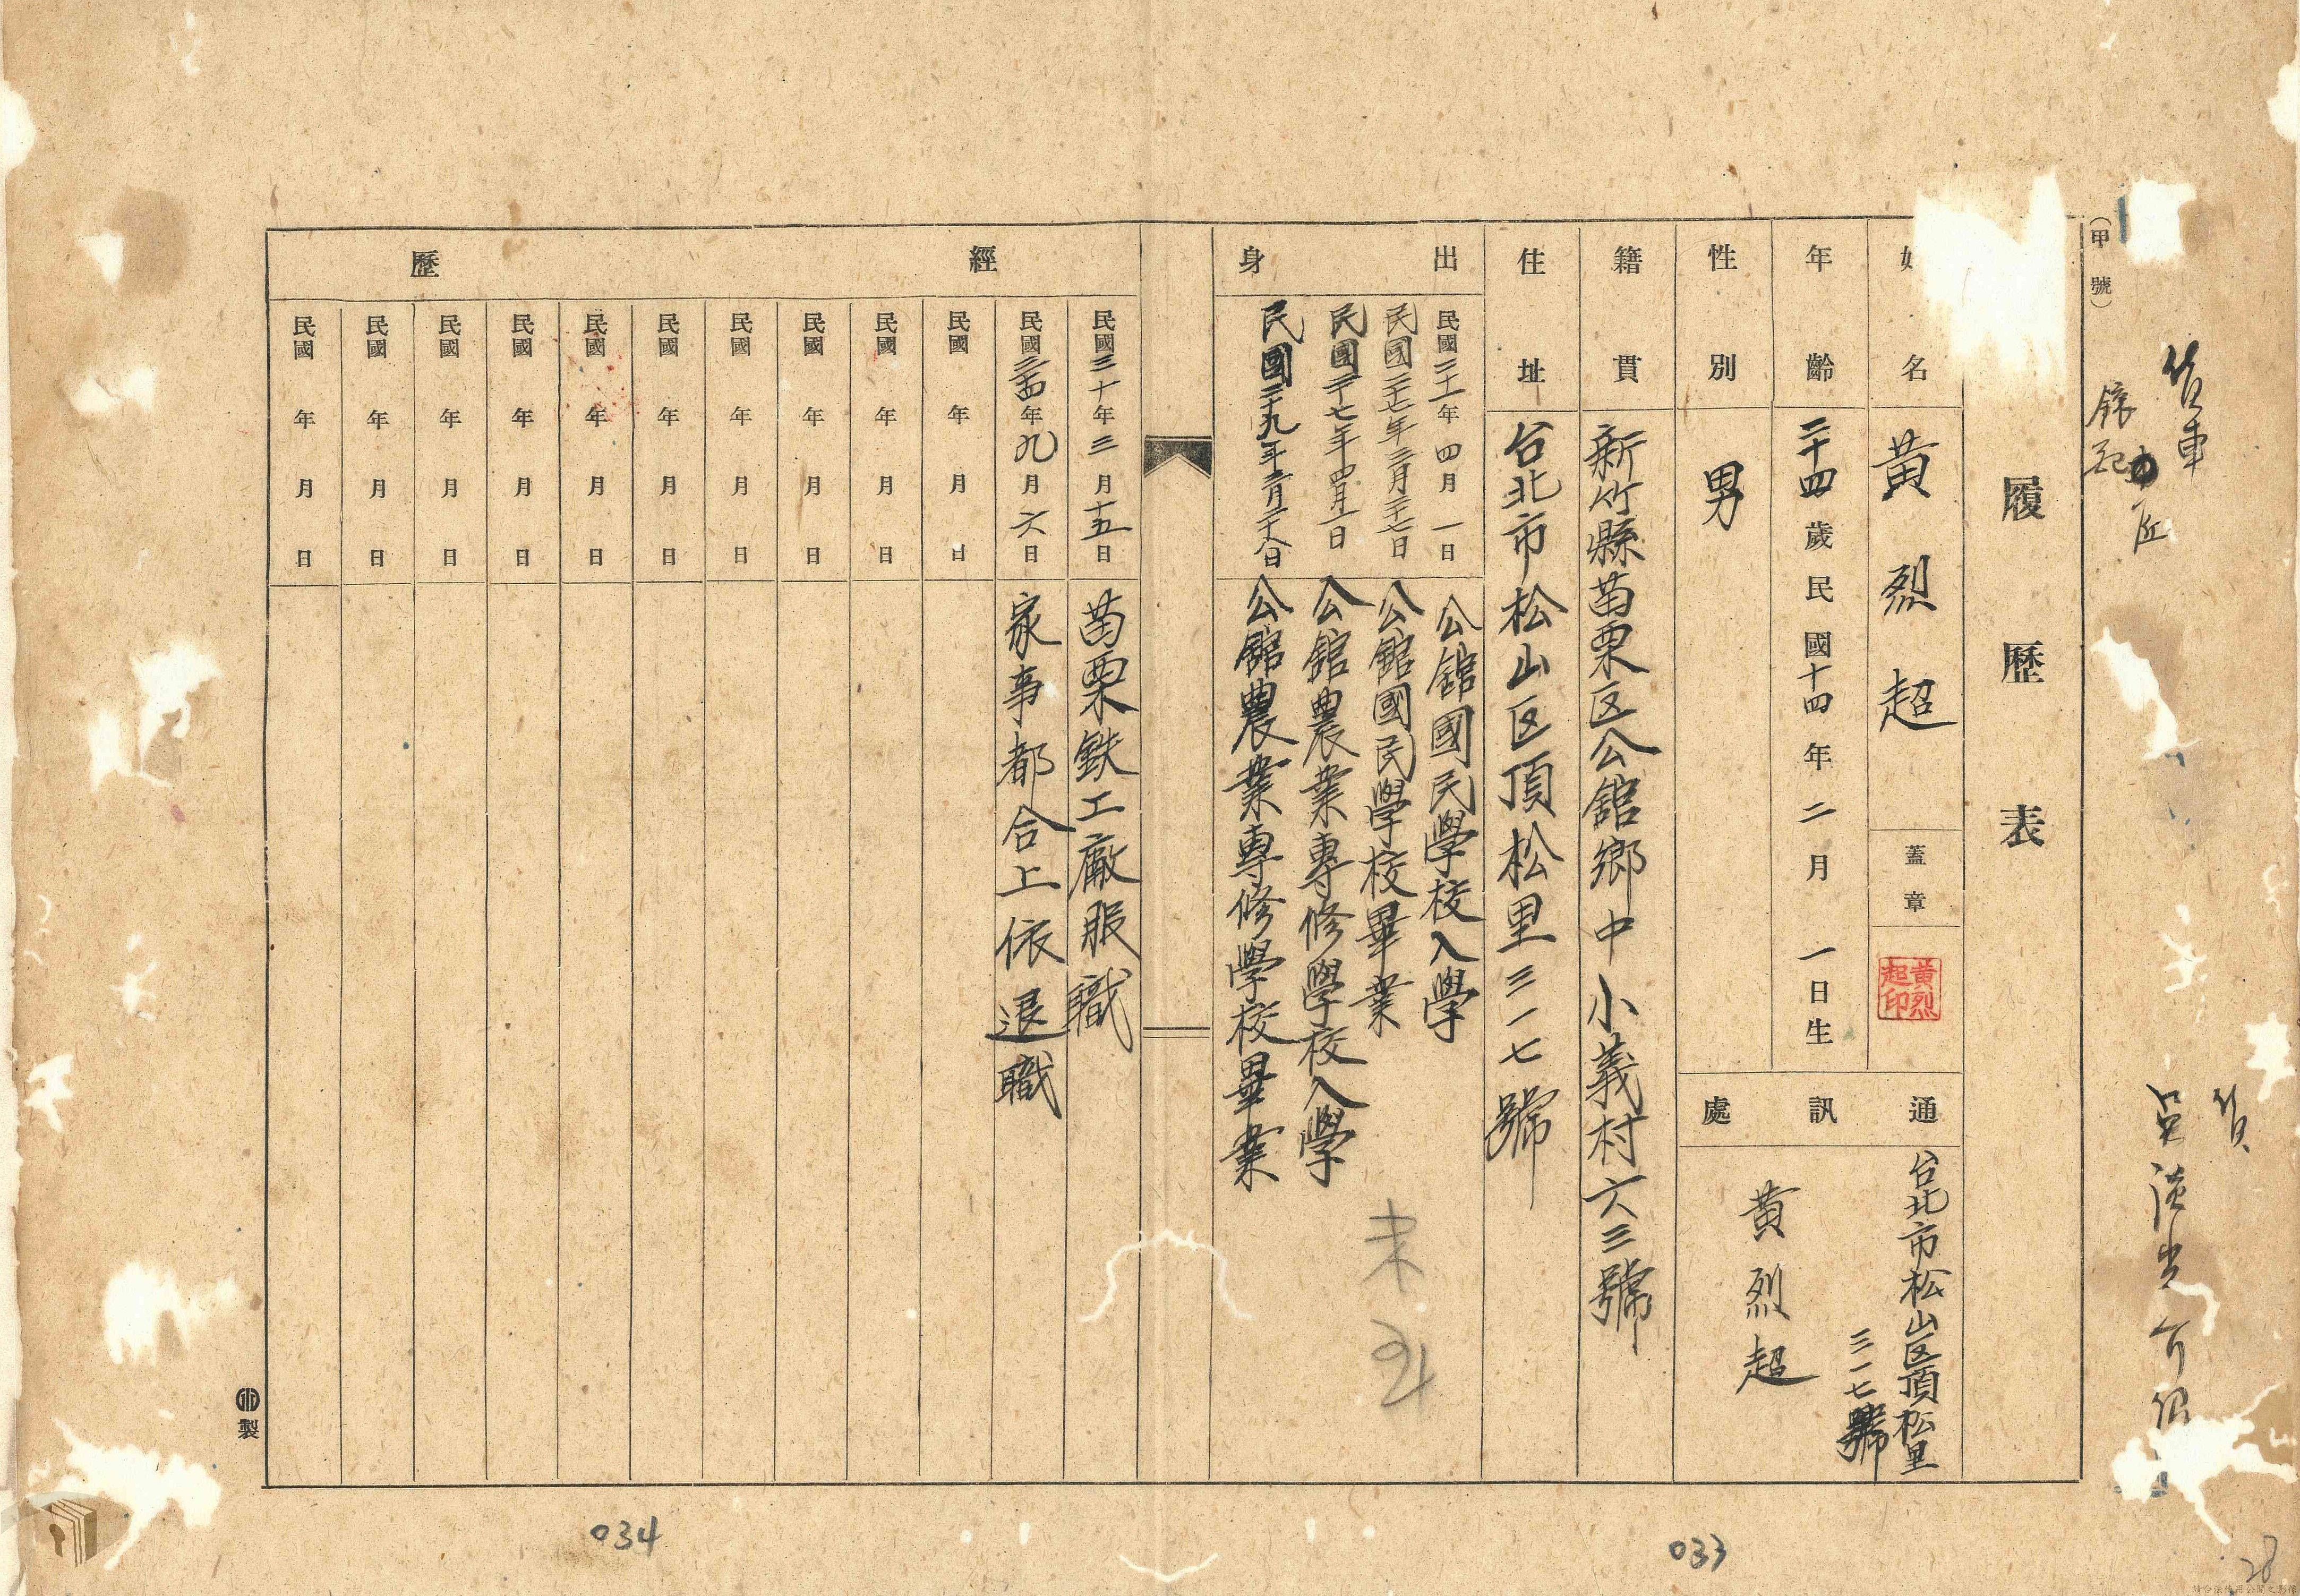 (甲號)
貨車
履歷表
名 黃烈超 蓋章
黃烈超印
年齡 二十四歲民國十四年二月一日生
性別 男
通訊處
台北市松山区頂松里
三一七號
黃烈超
籍貫 新竹縣苗栗区公館鄉中小義村六三號
住址 台北市松山区頂松里三一七號
出身
民國二十一年四月一日 公館國民學校入學
民國二十七年三月二十七日 公館國民學校畢業
民國二十七年四月一日 公館農業專修學校入學
公館農業專修學校畢業
經歷
民國三十年三月十五日 苗栗鉄工廠服職
民國三十四年九月六日 家事都合上依退職
民國 年 月 日
民國 年 月 日
民國 年 月 日
民國 年 月 日
民國 年 月 日
民國 年 月 日
民國 年 月 日
民國 年 月 日
民國 年 月 日
民國 年 月 日
製
033
034
28